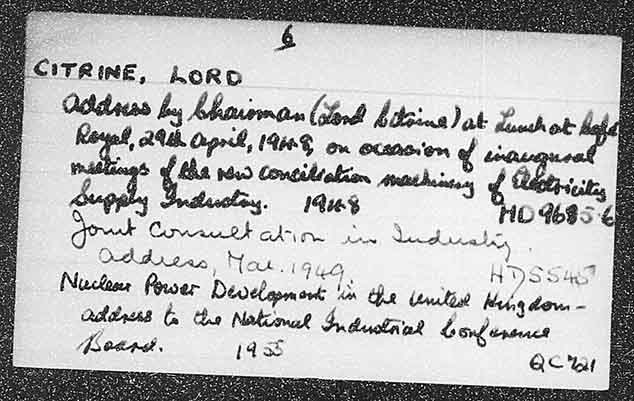 6
CITRINE, LORD
Address by Chairman (Lord Citrine) at Lunch at Café
Royal, 29th April, 1948, on occasion of inaugural
meetings of the new conciliation machinery of Electricity
Supply Industry. 1948 HD 9685.6
Joint Consultation in Industry.
address, Mar. 1949 HD5545
Nuclear Power Development in the United Kingdom -
address to the National Industrial Conference
Board. 1955 QC721